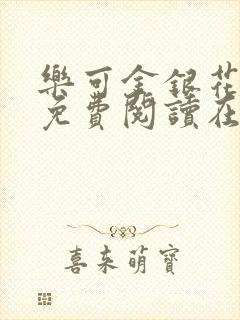 樂可金銀花
免費閱讀在
喜來萌寶